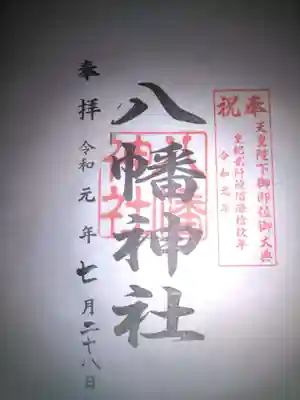 奉祝
天皇陛下御即位御大典
皇紀弐阡陸佰漆拾玖年
令和元年
八幡神社
八幡神社
奉拝
令和元年七月二十八日